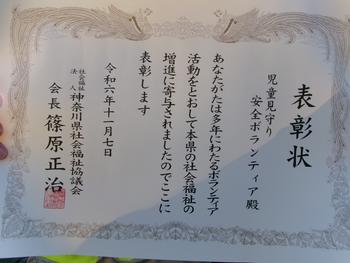 表彰状
児童見守り
安全ボランティア殿
あなたがたは多年にわたるボランティア
活動をとおして本県の社会福祉の
増進に寄与されましたのでここに
表彰します
令和六年十一月七日
社会福祉法人 神奈川県社会福祉協議会
会長 篠原正治